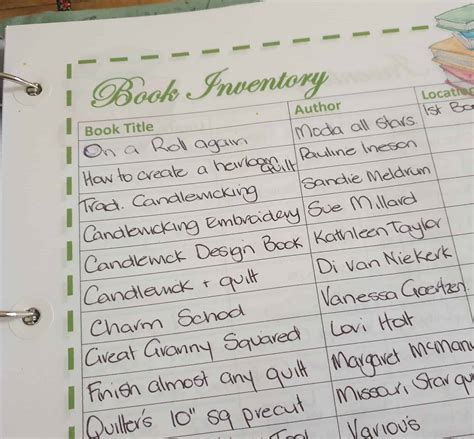 Book Inventory
Book Title Author
On a Roll again Moda all stars 1st
How to create a heirloom quilt Pauline Ineson
Trad. Candlewicking Sandie Meldrum
Candlewicking Embroidery Sue Millard
Candlewick Design Book Kathleen Taylor
Candlewick + quilt Di van Niekerk
Charm School Vanessa Goertzen
Great Granny Squared Lori Holt
Finish almost any quilt Margaret
Quilter's 10" sq precut Missouri Star
Various